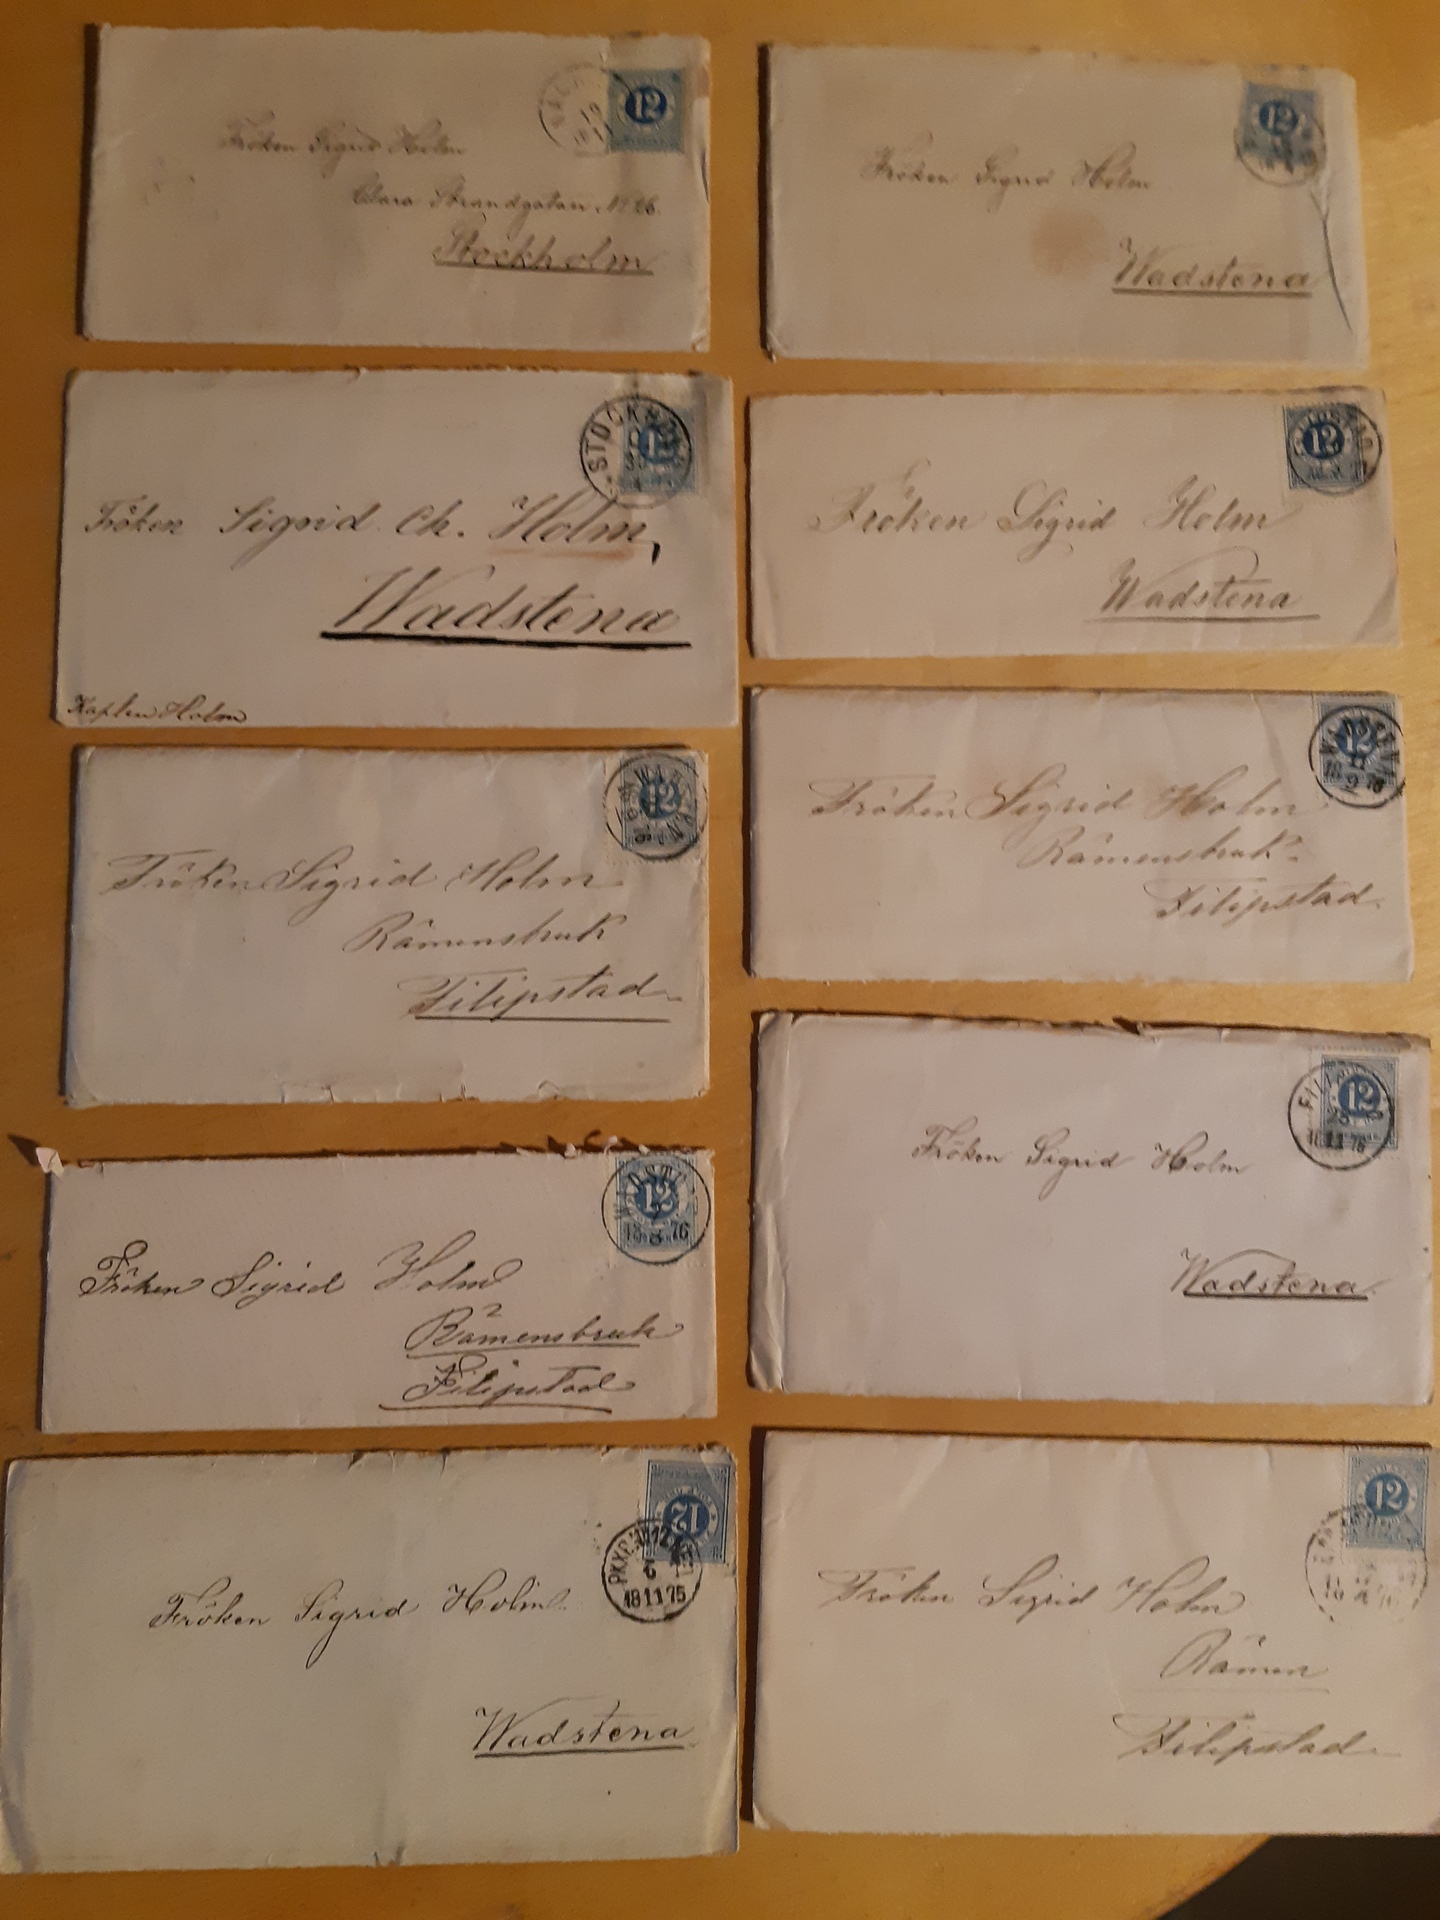 12
Fröken Sigrid Holm
Clara Strandgatan No 26.
Stockholm
12
Fröken Sigrid Holm
Wadstena
STOCKHOLM
12
Fröken Sigrid Ch. Holm,
Wadstena
Kapten Holm
12
Fröken Sigrid Holm
Wadstena
12
Fröken Sigrid Holm
Rämensbruk
Filipstad
WADSTENA
12
18 9 76
Fröken Sigrid Holm
Rämensbruk
Filipstad
12
18 8 76
Fröken Sigrid Holm
Rämensbruk
Filipstad
12
18 11 75
Fröken Sigrid Holm
Wadstena
12
18 11 75
Fröken Sigrid Holm
Wadstena
12
Fröken Sigrid Holm
Rämen
Filipstad